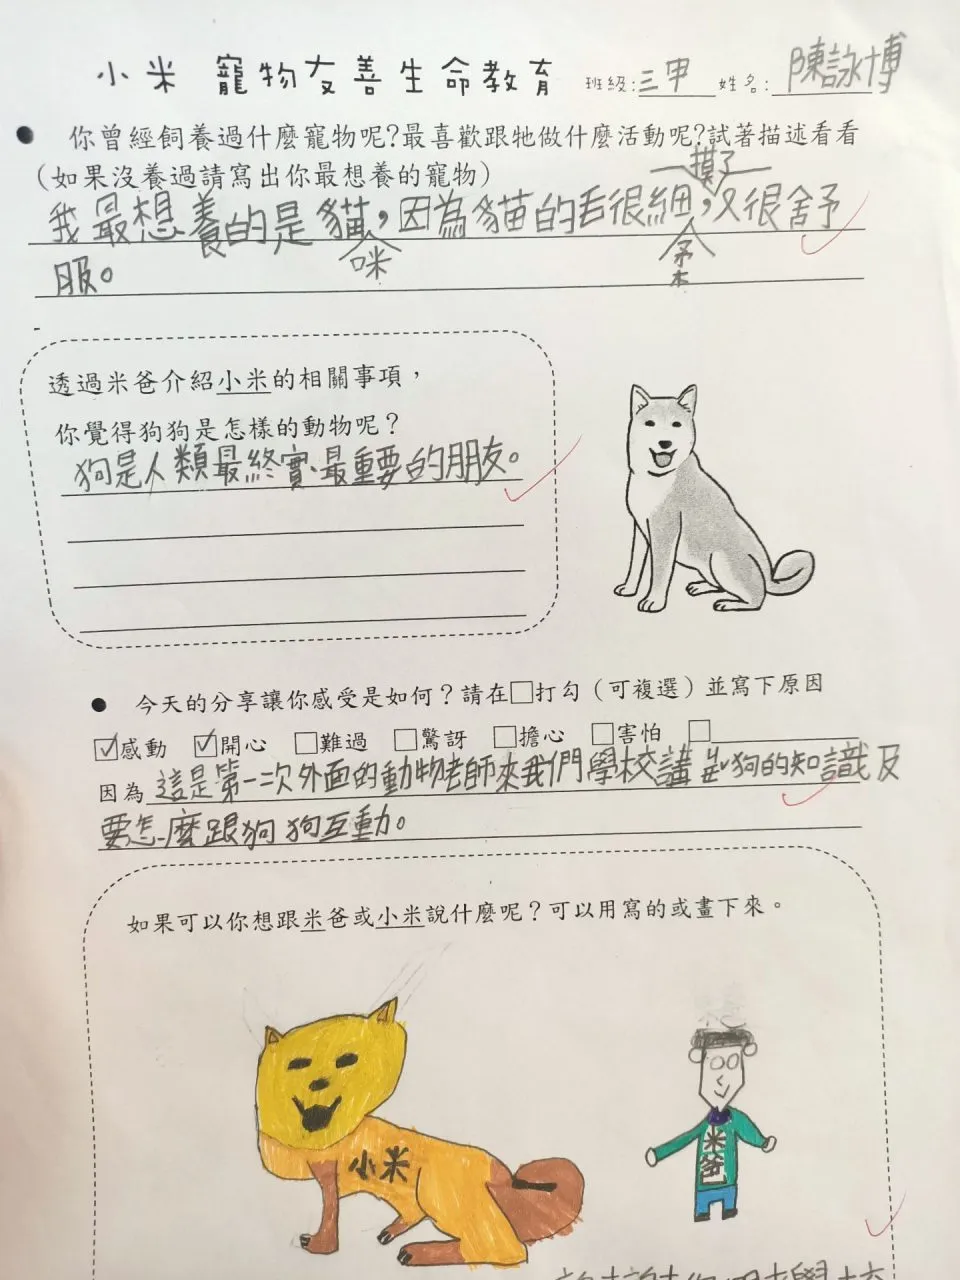 小米 寵物友善生命教育 班級:三甲 姓名:陳詠博
● 你曾經飼養過什麼寵物呢?最喜歡跟牠做什麼活動呢?試著描述看看
(如果沒養過請寫出你最想養的寵物)
摸了
我最想養的是貓,因為貓的毛很細,又很舒
咪
柔
服。
透過米爸介紹小米的相關事項,
你覺得狗狗是怎樣的動物呢?
狗是人類最終實、最重要的朋友。
● 今天的分享讓你感受是如何?請在□打勾(可複選)並寫下原因
☑感動 ☑開心 □難過 □驚訝 □擔心 □害怕 □
因為這是第一次外面的動物老師來我們學校講 狗的知識及
要怎麼跟狗狗互動。
如果可以你想跟米爸或小米說什麼呢?可以用寫的或畫下來。
小米
米爸